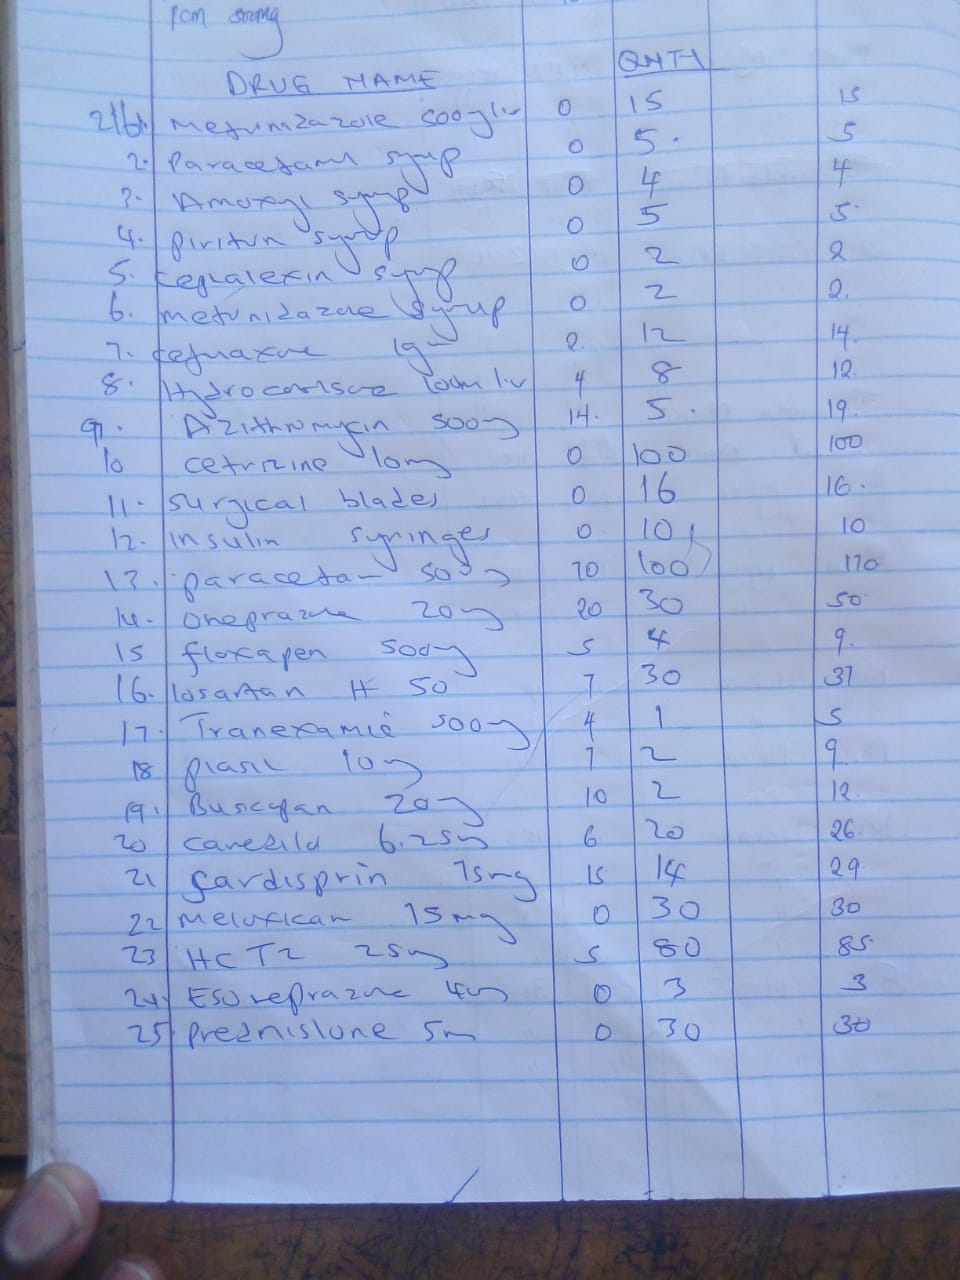 PCM 500mg
DRUG NAME QNTY
Metrunizazole 500g liv 0 15 15
2. Paracetaml syrup 0 5. 5
3. Amoxyl syrup 0 4 4
4. piritun syrup 0 5 5
5. cephalexin syrup 0 2 2
6. metunidazole syrup 0 2 2.
7. 1g 2 12 14.
8. 4 8 12.
9. Azithromycin 500g 14. 5. 19.
10 cetrizine 10mg 0 100 100
11. surgical blades 0 16 16.
12. Insulin syringes 0 10 10
13. paracetam 500g 70 100 170
14. omeprazole 20g 20 30 50
15 floxapen 500g 5 4 9.
16. losartan H 50 7 30 37
17. Tranexamic 500g 4 1 5
18 plasil 10g 7 2 9.
19. Buscopan 20g 10 2 12.
20 6.25m 6 20 26.
21 Cardisprin 75mg 15 14 29
22 Meloxican 15mg 0 30 30
23 HCTZ 25g 5 80 85
24. Esomeprazole 40g 0 3 3
25. prednislone 5m 0 30 30